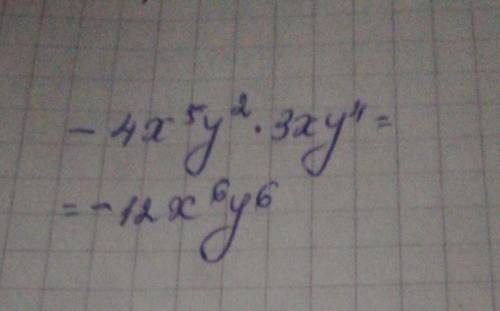 - 4x⁵y² · 3xy⁴ =
= - 12x⁶y⁶